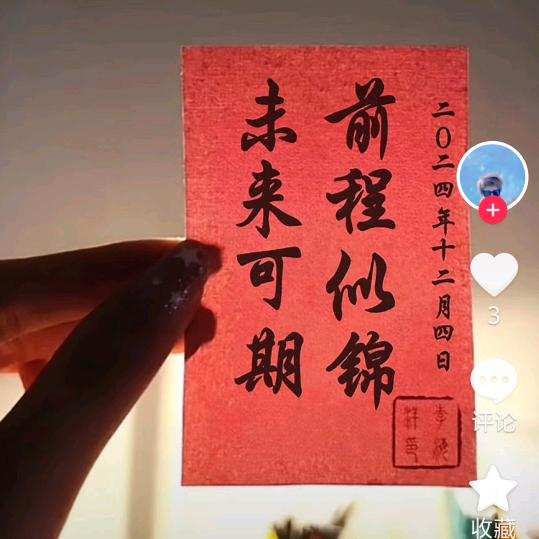 二〇二四年十二月四日
前程似锦
未来可期
3
评论
收藏